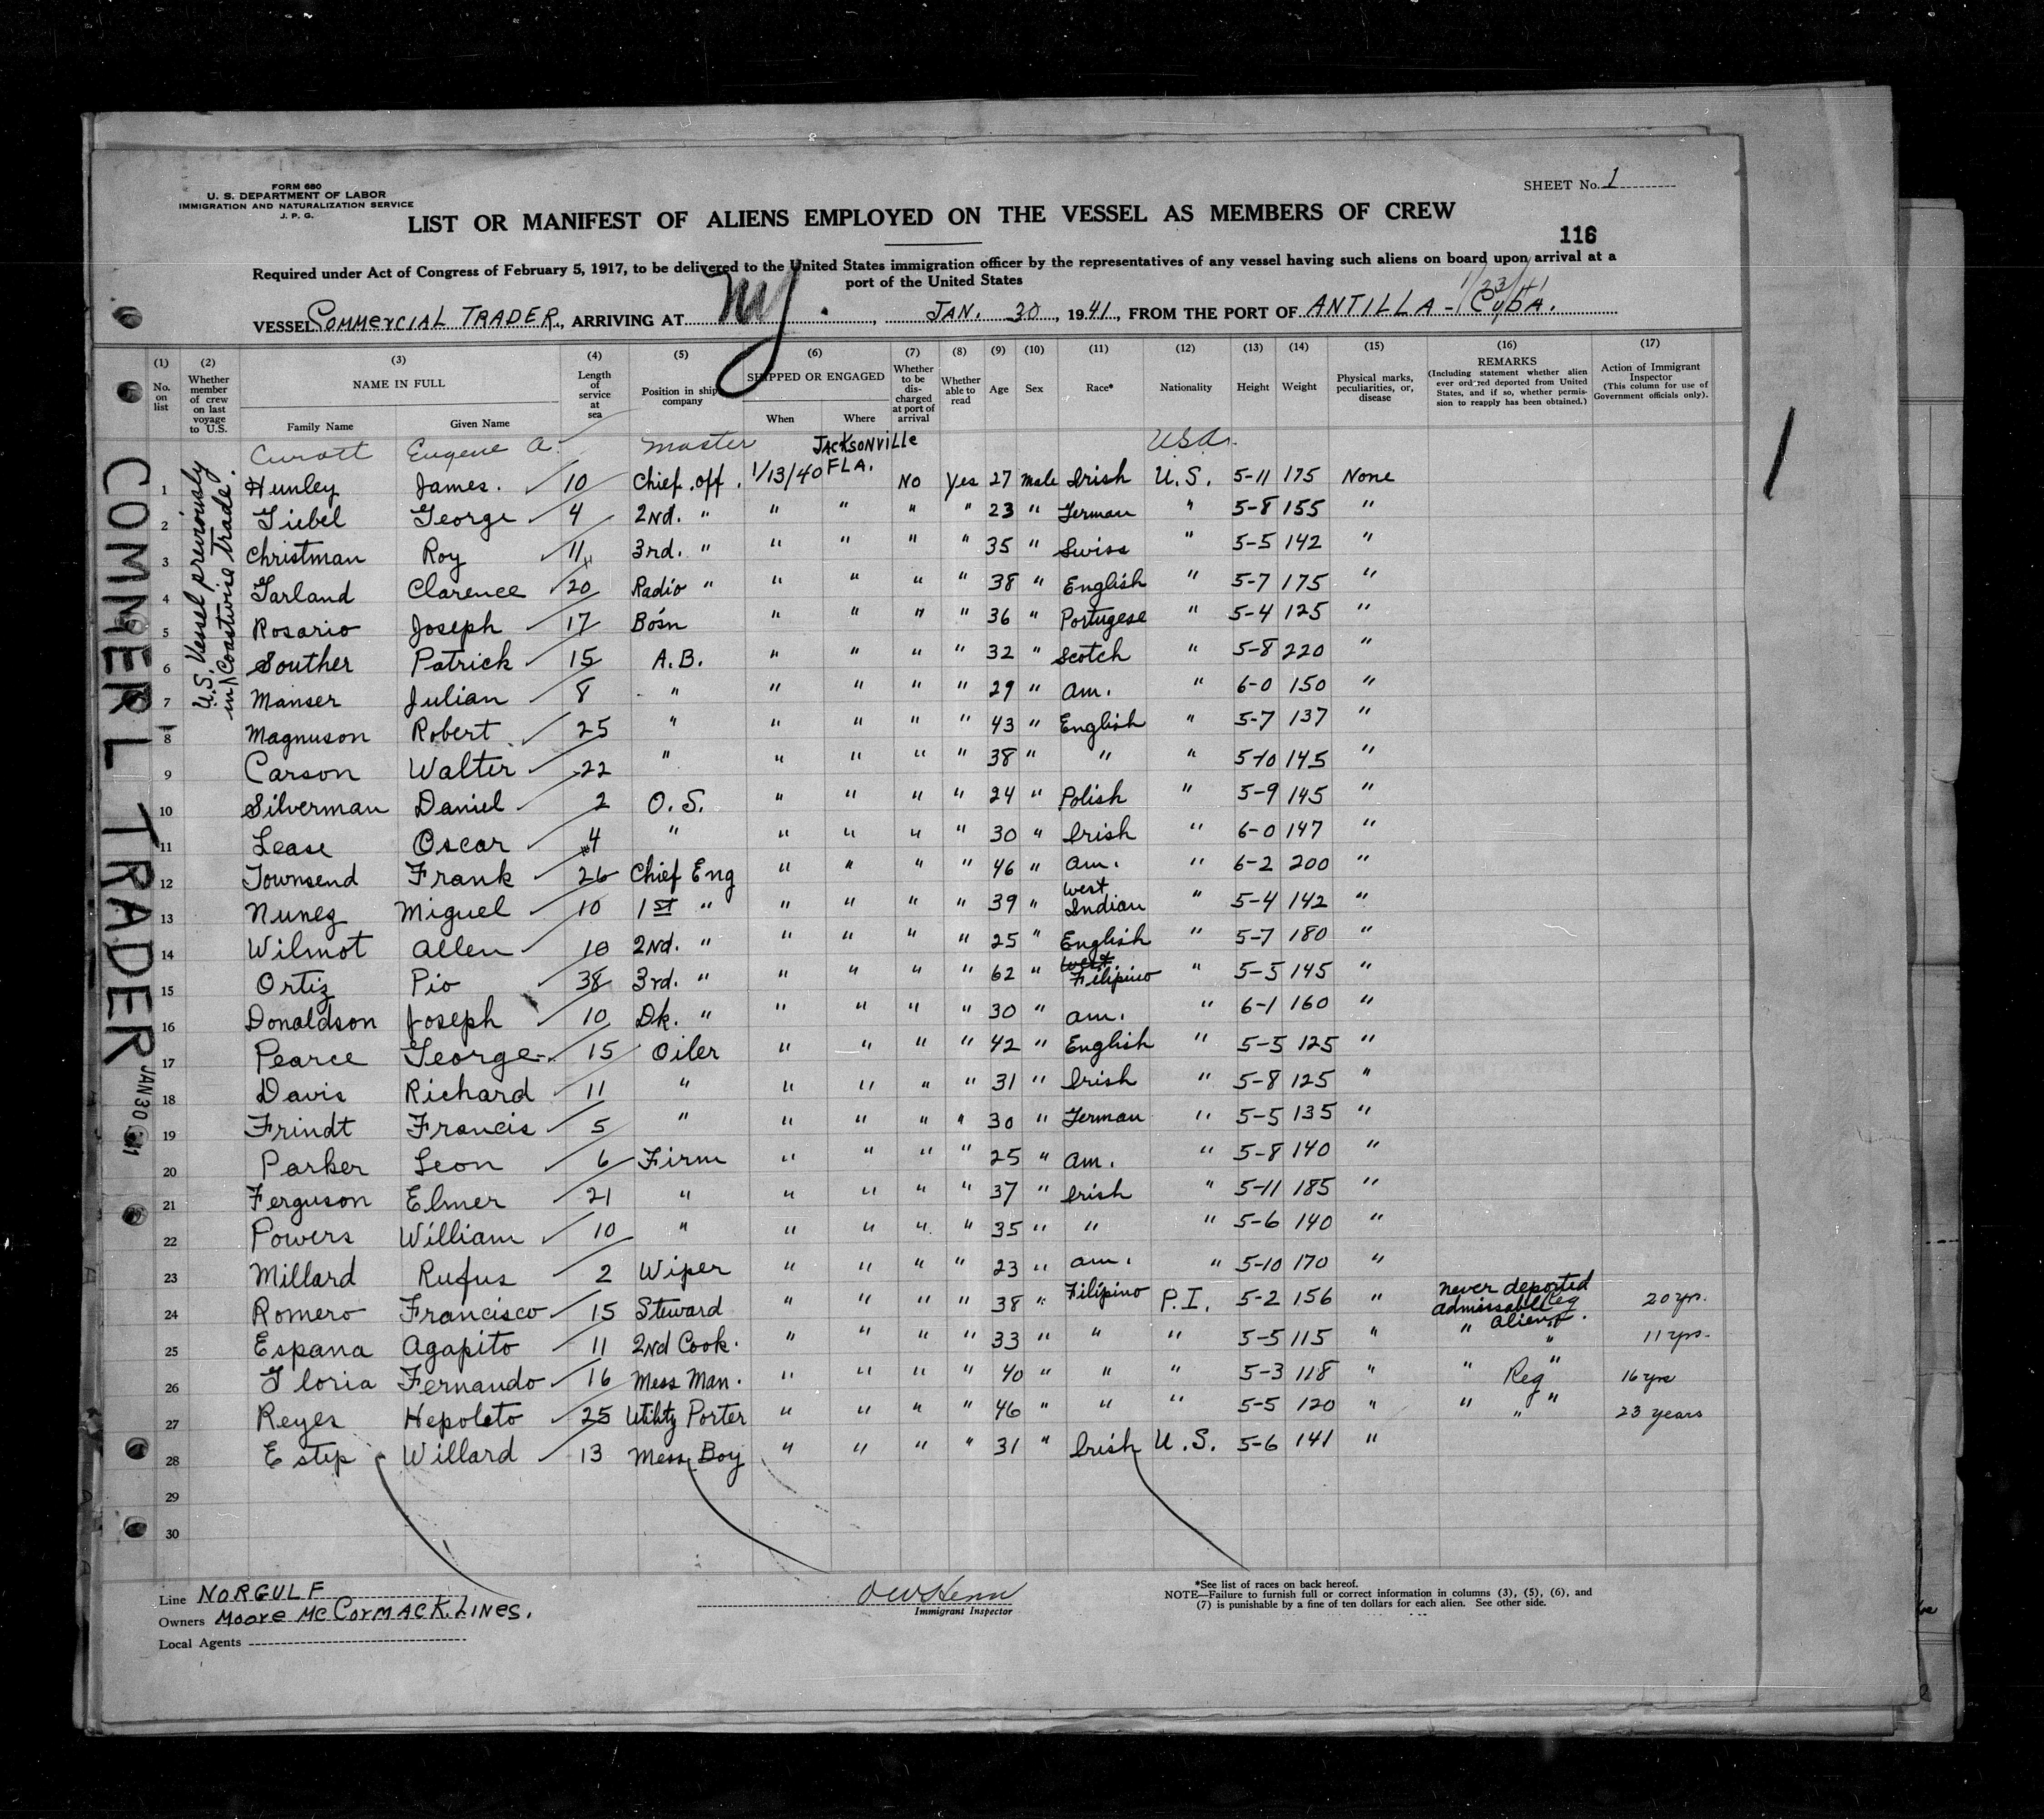 FORM 680
U. S. DEPARTMENT OF LABOR
IMMIGRATION AND NATURALIZATION SERVICE
J. P. G.
SHEET No. 1
LIST OR MANIFEST OF ALIENS EMPLOYED ON THE VESSEL AS MEMBERS OF CREW
116
Required under Act of Congress of February 5, 1917, to be delivered to the United States immigration officer by the representatives of any vessel having such aliens on board upon arrival at a
port of the United States
1/23/41
VESSEL COMMERCIAL TRADER, ARRIVING AT NY., JAN. 30, 1941, FROM THE PORT OF ANTILLA - CUBA.
(1) No. on list (2) Whether member of crew on last voyage to U.S. (3) NAME IN FULL Family Name Given Name (4) Length of service at sea (5) Position in ship company (6) SHIPPED OR ENGAGED When Where (7) Whether to be discharged at port of arrival (8) Whether able to read (9) Age (10) Sex (11) Race* (12) Nationality (13) Height (14) Weight (15) Physical marks, peculiarities, or, disease (16) REMARKS (Including statement whether alien ever ordered deported from United States, and if so, whether permission to reapply has been obtained.) (17) Action of Immigrant Inspector (This column for use of Government officials only).
COMMERCL TRADER
JAN 30 1941
U.S. Vessel previously
in Coastwise trade.
Curott Eugene A. Master USA.
1 Hunley James. 10 Chief off. 1/13/40 JACKSONVILLE FLA. No Yes 27 Male Irish U.S. 5-11 175 None
2 Giebel George 4 2nd. " " " " " 23 " German " 5-8 155 "
3 Christman Roy 11 3rd. " " " " " 35 " Swiss " 5-5 142 "
4 Garland Clarence 20 Radio " " " " " 38 " English " 5-7 175 "
5 Rosario Joseph 17 Bosn " " " " 36 " Portugese " 5-4 125 "
6 Souther Patrick 15 A.B. " " " " 32 " Scotch " 5-8 220 "
7 Manser Julian 8 " " " " " 29 " Am. " 6-0 150 "
8 Magnuson Robert 25 " " " " " 43 " English " 5-7 137 "
9 Carson Walter 22 " " " " " 38 " " " 5-10 145 "
10 Silverman Daniel 2 O.S. " " " " 24 " Polish " 5-9 145 "
11 Lease Oscar 4 " " " " " 30 " Irish " 6-0 147 "
12 Townsend Frank 26 Chief Eng " " " " 46 " Am. " 6-2 200 "
13 Nunez Miguel 10 1st " " " " " 39 " West Indian " 5-4 142 "
14 Wilmot Allen 10 2nd. " " " " " 25 " English " 5-7 180 "
15 Ortiz Pio 38 3rd. " " " " " 62 " West Filipino " 5-5 145 "
16 Donaldson Joseph 10 Dk. " " " " " 30 " Am. " 6-1 160 "
17 Pearce George 15 Oiler " " " " 42 " English " 5-5 125 "
18 Davis Richard 11 " " " " " 31 " Irish " 5-8 125 "
19 Frindt Francis 5 " " " " " 30 " German " 5-5 135 "
20 Parker Leon 6 Firm " " " " 25 " Am. " 5-8 140 "
21 Ferguson Elmer 21 " " " " " 37 " Irish " 5-11 185 "
22 Powers William 10 " " " " " 35 " " " 5-6 140 "
23 Millard Rufus 2 Wiper " " " " 23 " Am. " 5-10 170 "
24 Romero Francisco 15 Steward " " " " 38 " Filipino P.I. 5-2 156 " never deported admissable Reg alien. 20 yrs.
25 Espana Agapito 11 2nd Cook. " " " " 33 " " " 5-5 115 " " " 11 yrs.
26 Gloria Fernando 16 Mess Man. " " " " 40 " " " 5-3 118 " " Reg " 16 yrs
27 Reyes Hepoleto 25 Utility Porter " " " " 46 " " " 5-5 120 " " " " 23 years
28 Estep Willard 13 Mess Boy " " " " 31 " Irish U.S. 5-6 141 "
29
30
Line NORGULF
Owners Moore McCormack Lines.
Local Agents
Immigrant Inspector
*See list of races on back hereof.
NOTE—Failure to furnish full or correct information in columns (3), (5), (6), and
(7) is punishable by a fine of ten dollars for each alien. See other side.